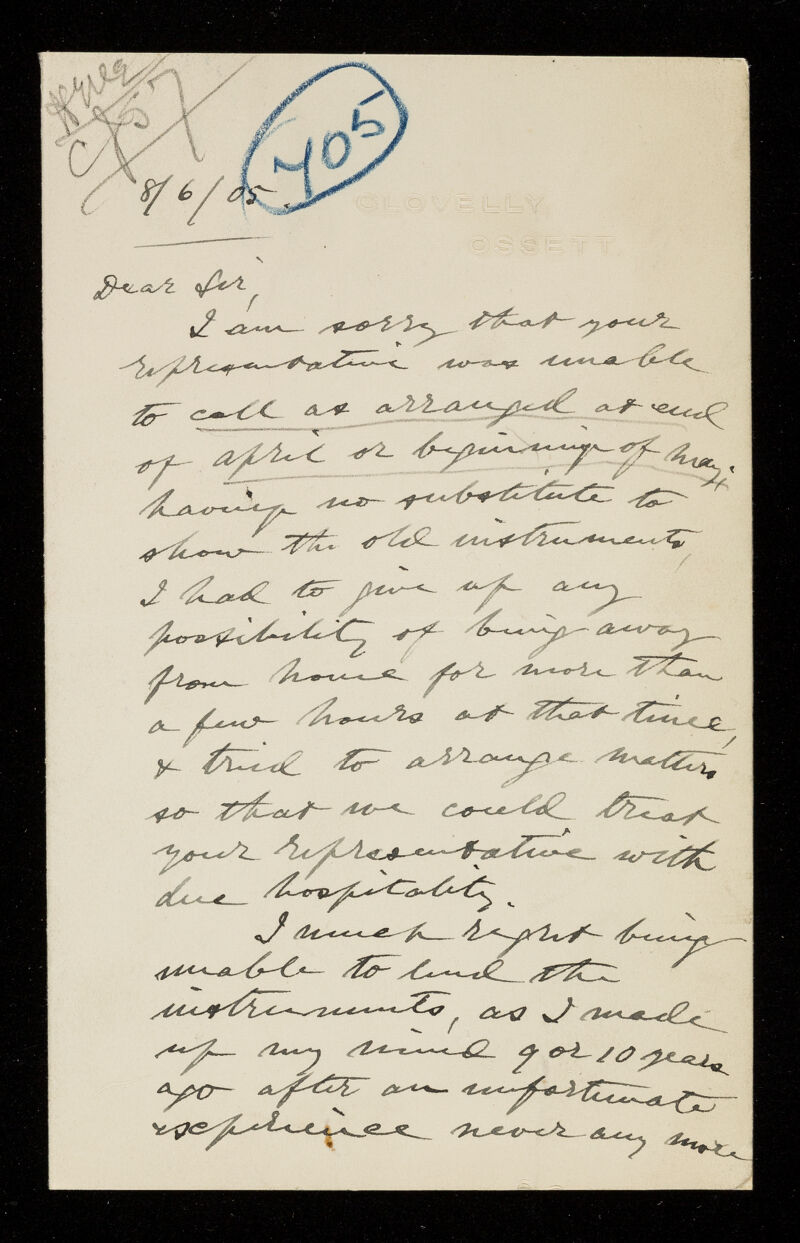 C/57
705
8/6/05.
CLOVELLY
OSSETT
Dear Sir,
I am sorry that your
representative was unable
to call as arranged at end
of april or beginning of May;
having no substitute to
show the old instruments,
I had to give up any
possibility of being away
from home for more than
a few hours at that time,
& tried to arrange matters
so that we could treat
your representative with
due hospitality.
I much regret being
unable to lend the
instruments, as I made
up my mind 9 or 10 years
ago after an unfortunate
experience never any more